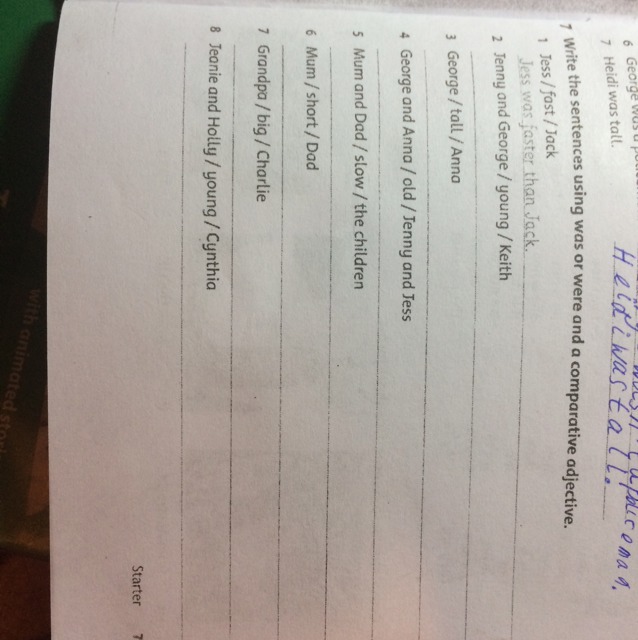 6 George was
7 Heidi was tall.
Heidi was tall.
7 Write the sentences using was or were and a comparative adjective.
1 Jess / fast / Jack
Jess was faster than Jack.
2 Jenny and George / young / Keith
3 George / tall / Anna
4 George and Anna / old / Jenny and Jess
5 Mum and Dad / slow / the children
6 Mum / short / Dad
7 Grandpa / big / Charlie
8 Jeanie and Holly / young / Cynthia
Starter 7
with animated